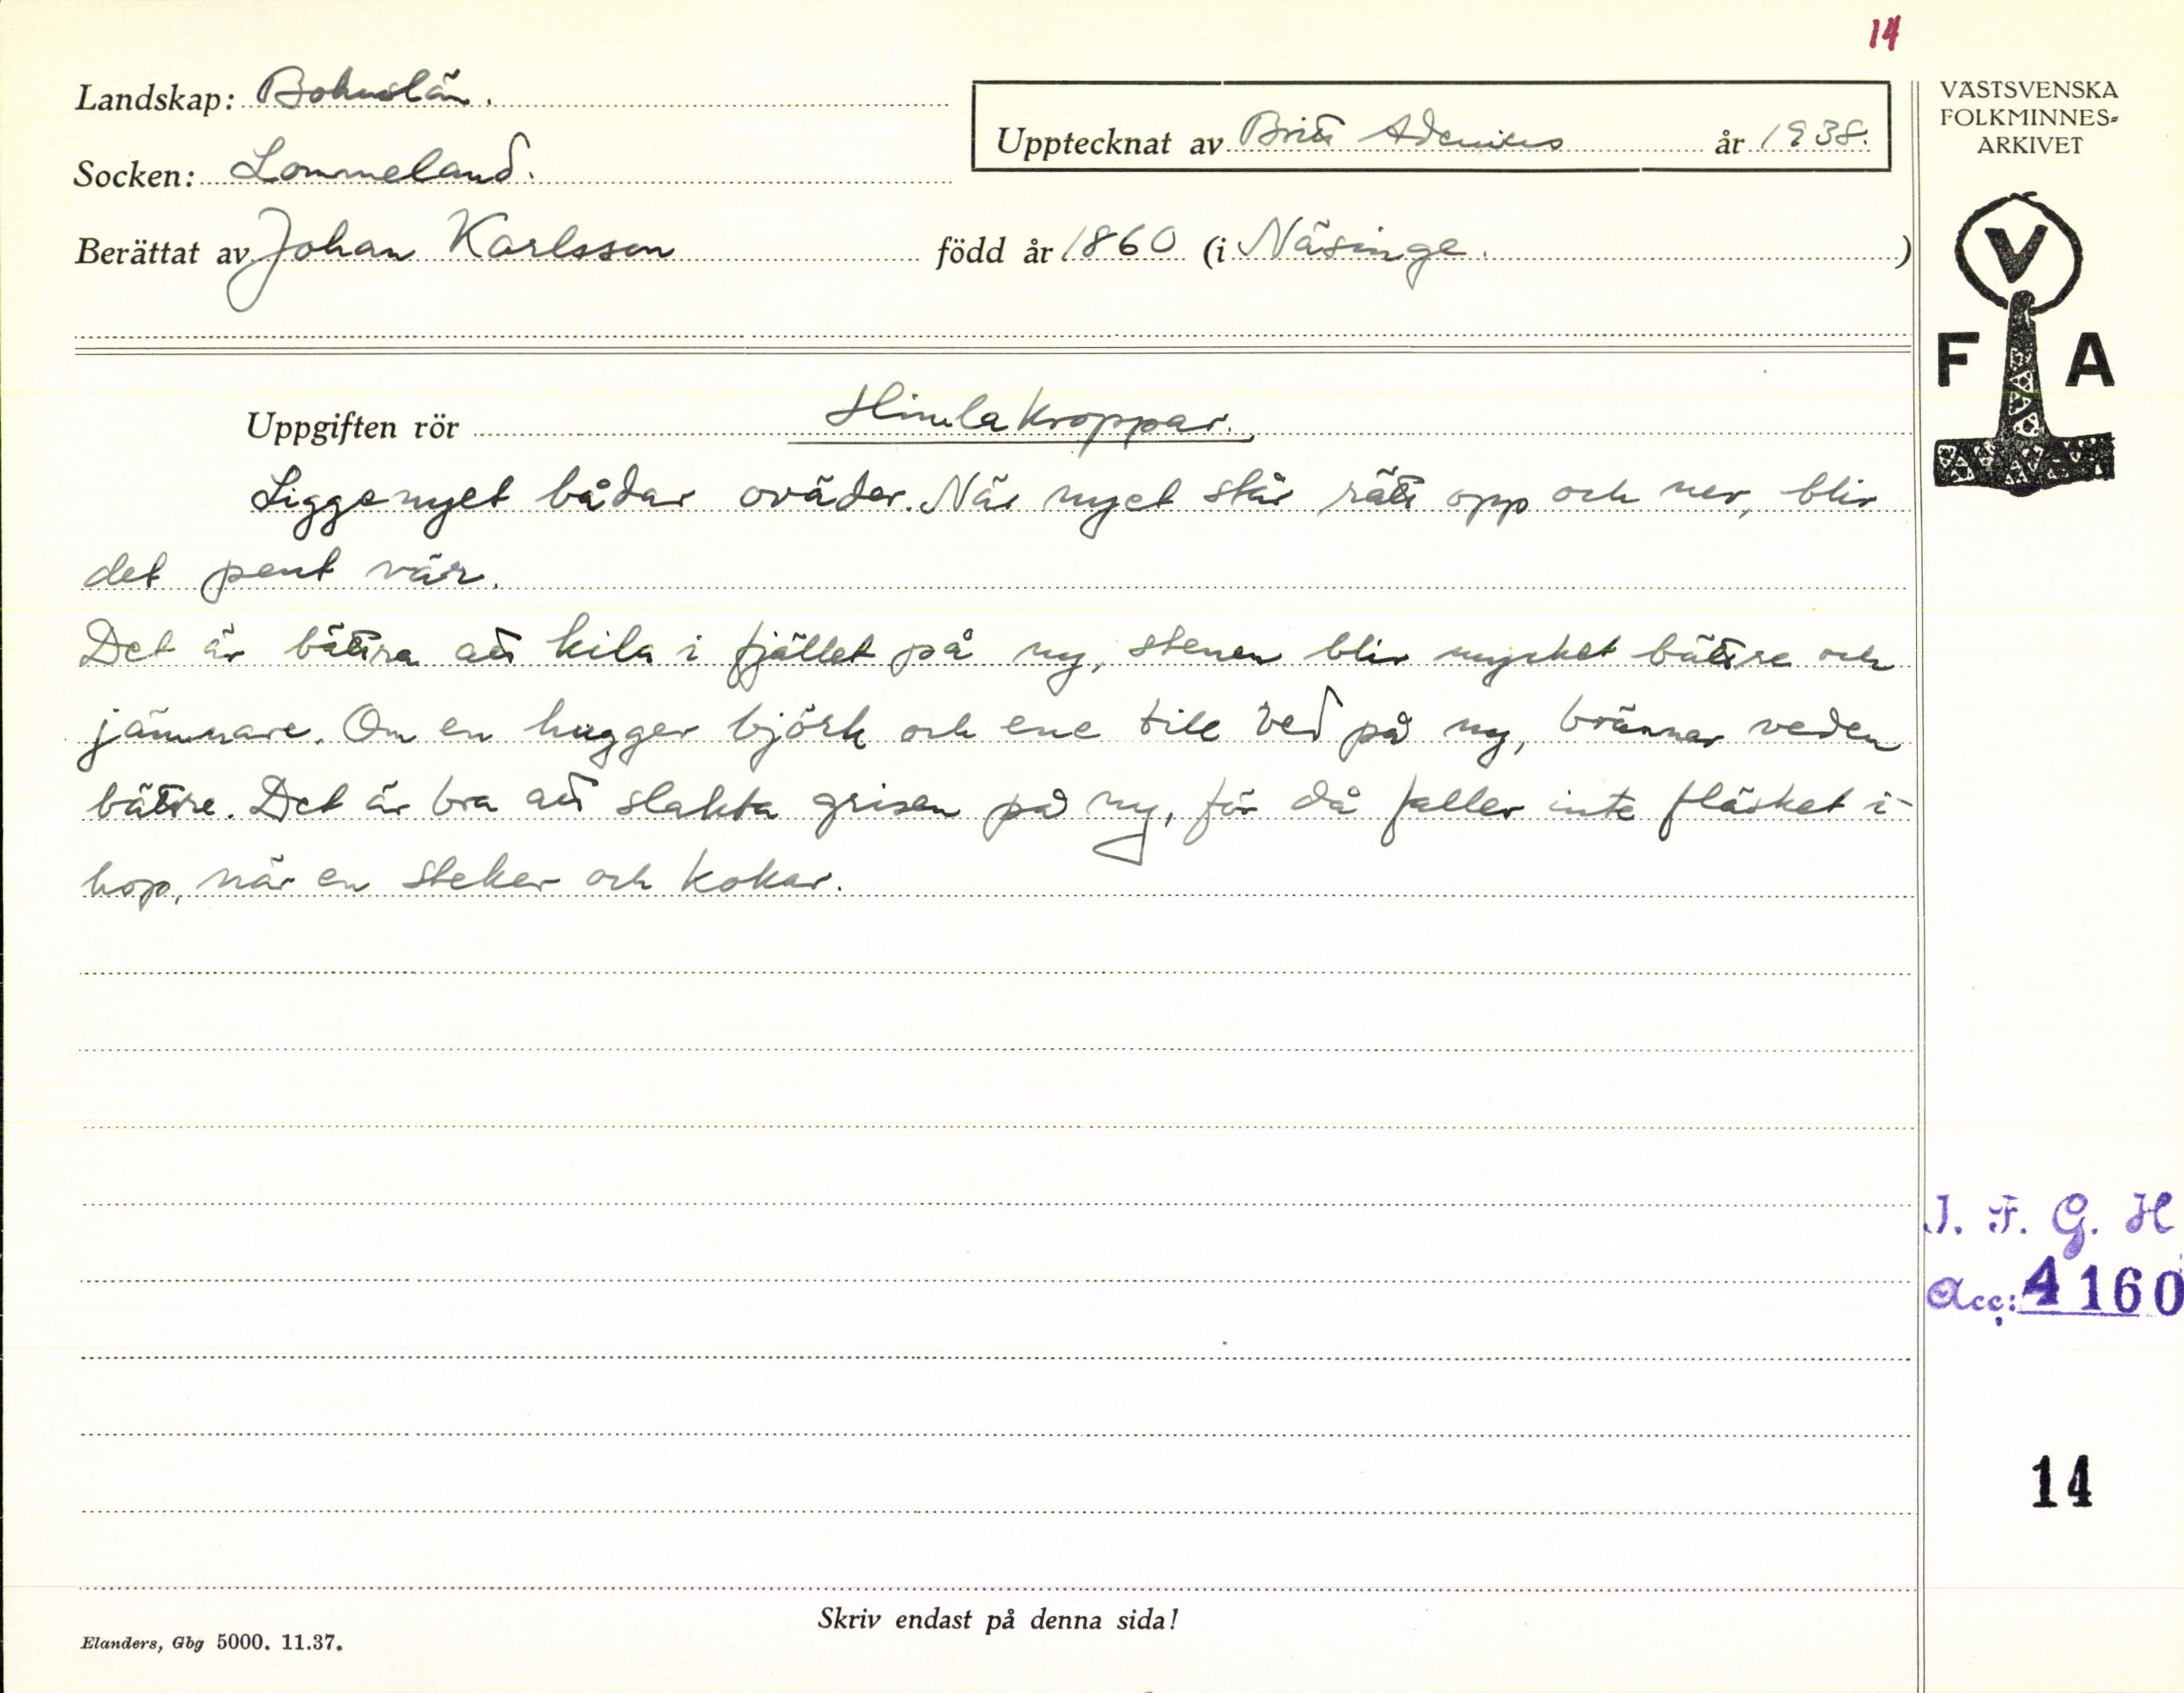 14
Landskap: Bohuslän.
Upptecknat av Britt Adenius år 1938.
Socken: Lommeland.
Berättat av Johan Karlsson född år 1860 (i Näsinge.)
VÄSTSVENSKA
FOLKMINNES-
ARKIVET
V
F A
Uppgiften rör Himlakroppar.
Liggenyet bådar oväder. När nyet står rätt opp och ner, blir
det pent vär.
Det är bättra att kila i fjället på ny, stenen blir mycket bättre och
jämnare. Om en hugger björk och ene till ved på ny, brännar veden
bättre. Det är bra att slakta grisen på ny, för då faller inte fläsket i-
hop, när en steker och kokar.
I. F. G. H
Acc: 4160
14
Skriv endast på denna sida!
Elanders, Gbg 5000. 11.37.